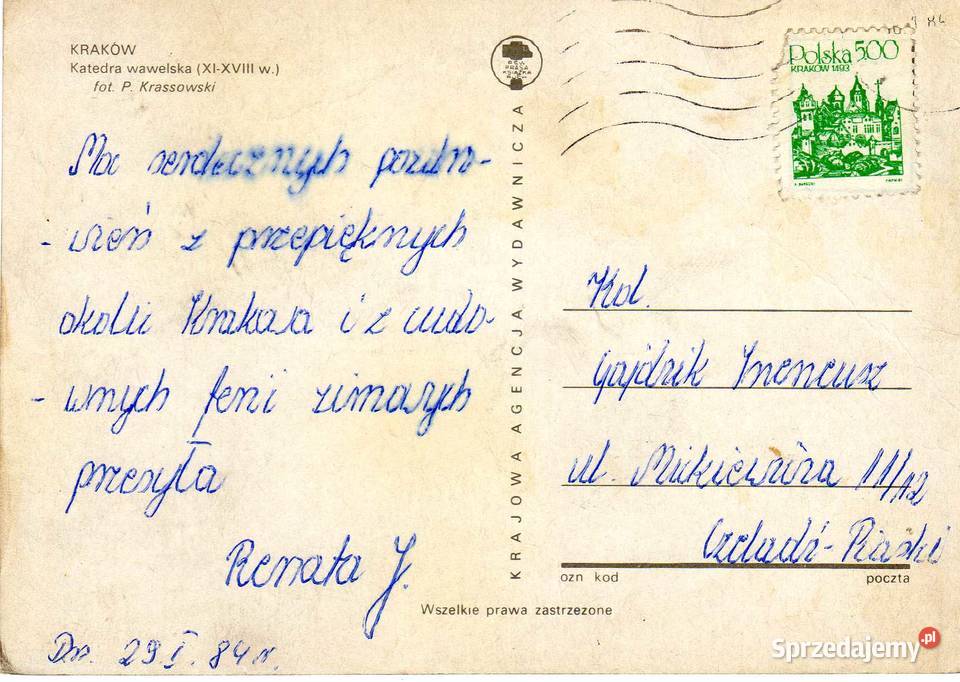 KRAKÓW
Katedra wawelska (XI-XVIII w.)
fot. P. Krassowski
Moc serdecznych pozdro-
- wień z przepięknych
okolic Krakowa i z cudo-
- wnych ferii zimowych
przesyła
Renata J.
Dn. 29 I. 84 r.
KRAJOWA AGENCJA WYDAWNICZA
RSW
PRASA
KSIĄŻKA
RUCH
Polska 500
KRAKÓW 1493
Kol.
Gajdzik Ireneusz
ul. Mickiewicza 11/12
Czeladź-Piaski
ozn kod
poczta
Wszelkie prawa zastrzeżone
Sprzedajemy.pl